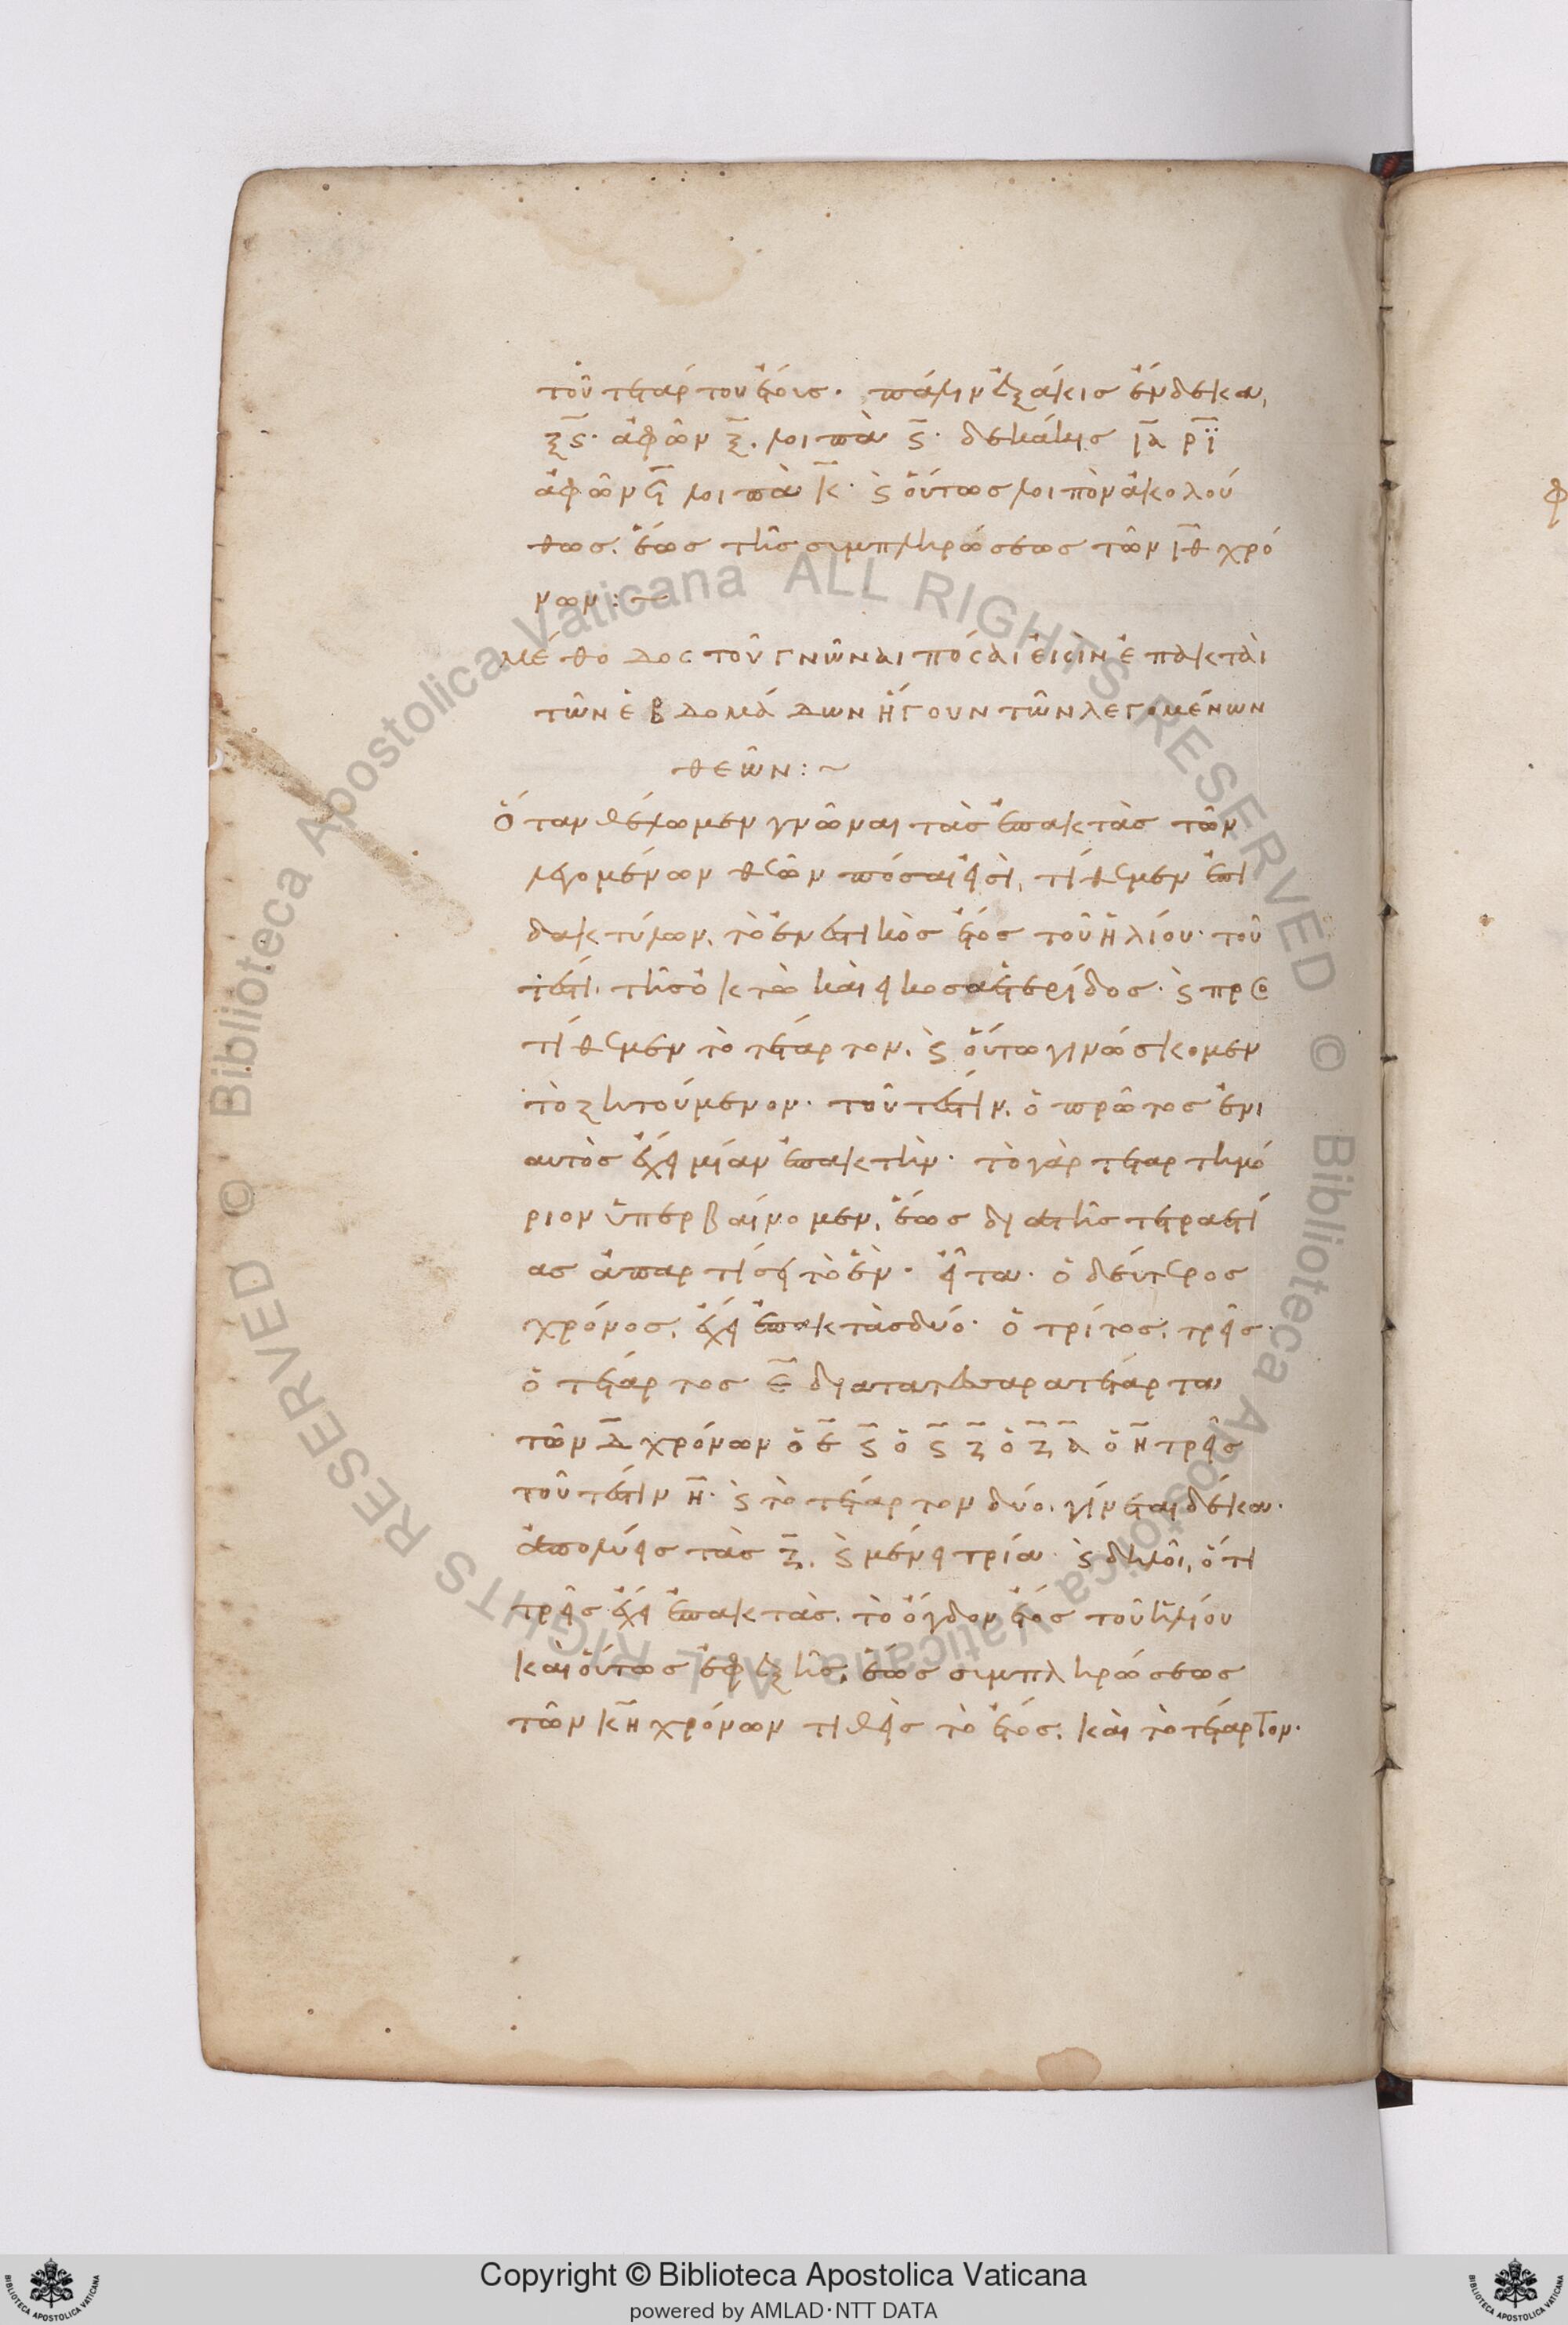 τοῦ τετάρτου ἔτους· πάλιν ἑξάκις ἕνδεκα,
ξϛ· ἀφ ὧν ξ, λοιπὰ ϛ· δεκάκις ια ρϊ
ἀφ ὧν λοιπὰ κ· ϗ οὕτως λοιπὸν ἀκολού
θως, ἕως τῆς συμπληρώσεως τῶν ιθ χρό
νων :~
Μέθοδος τοῦ γνῶναι πόσαι εἰσὶν ἐπακταὶ
τῶν ἑβδομάδων ἤγουν τῶν λεγομένων
θεῶν :~
Ὅταν θέλωμεν γνῶναι τὰς ἐπακτὰς τῶν
λεγομένων θεῶν πόσαι εἰσὶ, τίθεμεν ἐπὶ
δακτύλων, τὸ ἐνεστηκὸς ἔτος τοῦ ἡλίου· του
τέστι, τῆς ὀκτὼ καὶ εἰκοσαετερίδος· ϗ προσ
τίθεμεν τὸ τέταρτον, ϗ οὕτω γινώσκομεν
τὸ ζητούμενον· τοῦτέστιν, ὁ πρῶτος ἐνι
αυτὸς ἔχει μίαν ἐπακτὴν· τὸ γὰρ τεταρτημό
ριον ὑπερβαίνομεν, ἕως δια τῆς τετραετί
ας ἀπαρτίσει τὸ ἓν· εἶτα· ὁ δεύτερος
χρόνος, ἔχει ἐπακτὰς δύο· ὁ τρίτος, τρεῖς·
ὁ τέταρτος ε δια τα τέσσαρα τέταρτα
τῶν δ χρόνων ὁ ε ϛ ὁ ϛ ζ ὁ ζ α ὁ η τρεῖς
τοῦτέστιν η· ϗ τὸ τέταρτον δύο, γίνεται δέκα·
ἀπολύεις τὰς ζ, ϗ μένει τρία· ϗ δηλοῖ, ὅτι
τρεῖς ἔχει ἐπακτὰς, τὸ ὄγδον ἔτος τοῦ ἡλίου
καὶ οὕτως ἐφεξῆς, ἕως συμπληρώσεως
τῶν κη χρόνων τιθεὶς τὸ ἔτος, καὶ τὸ τέταρτον·
Copyright © Biblioteca Apostolica Vaticana
powered by AMLAD·NTT DATA